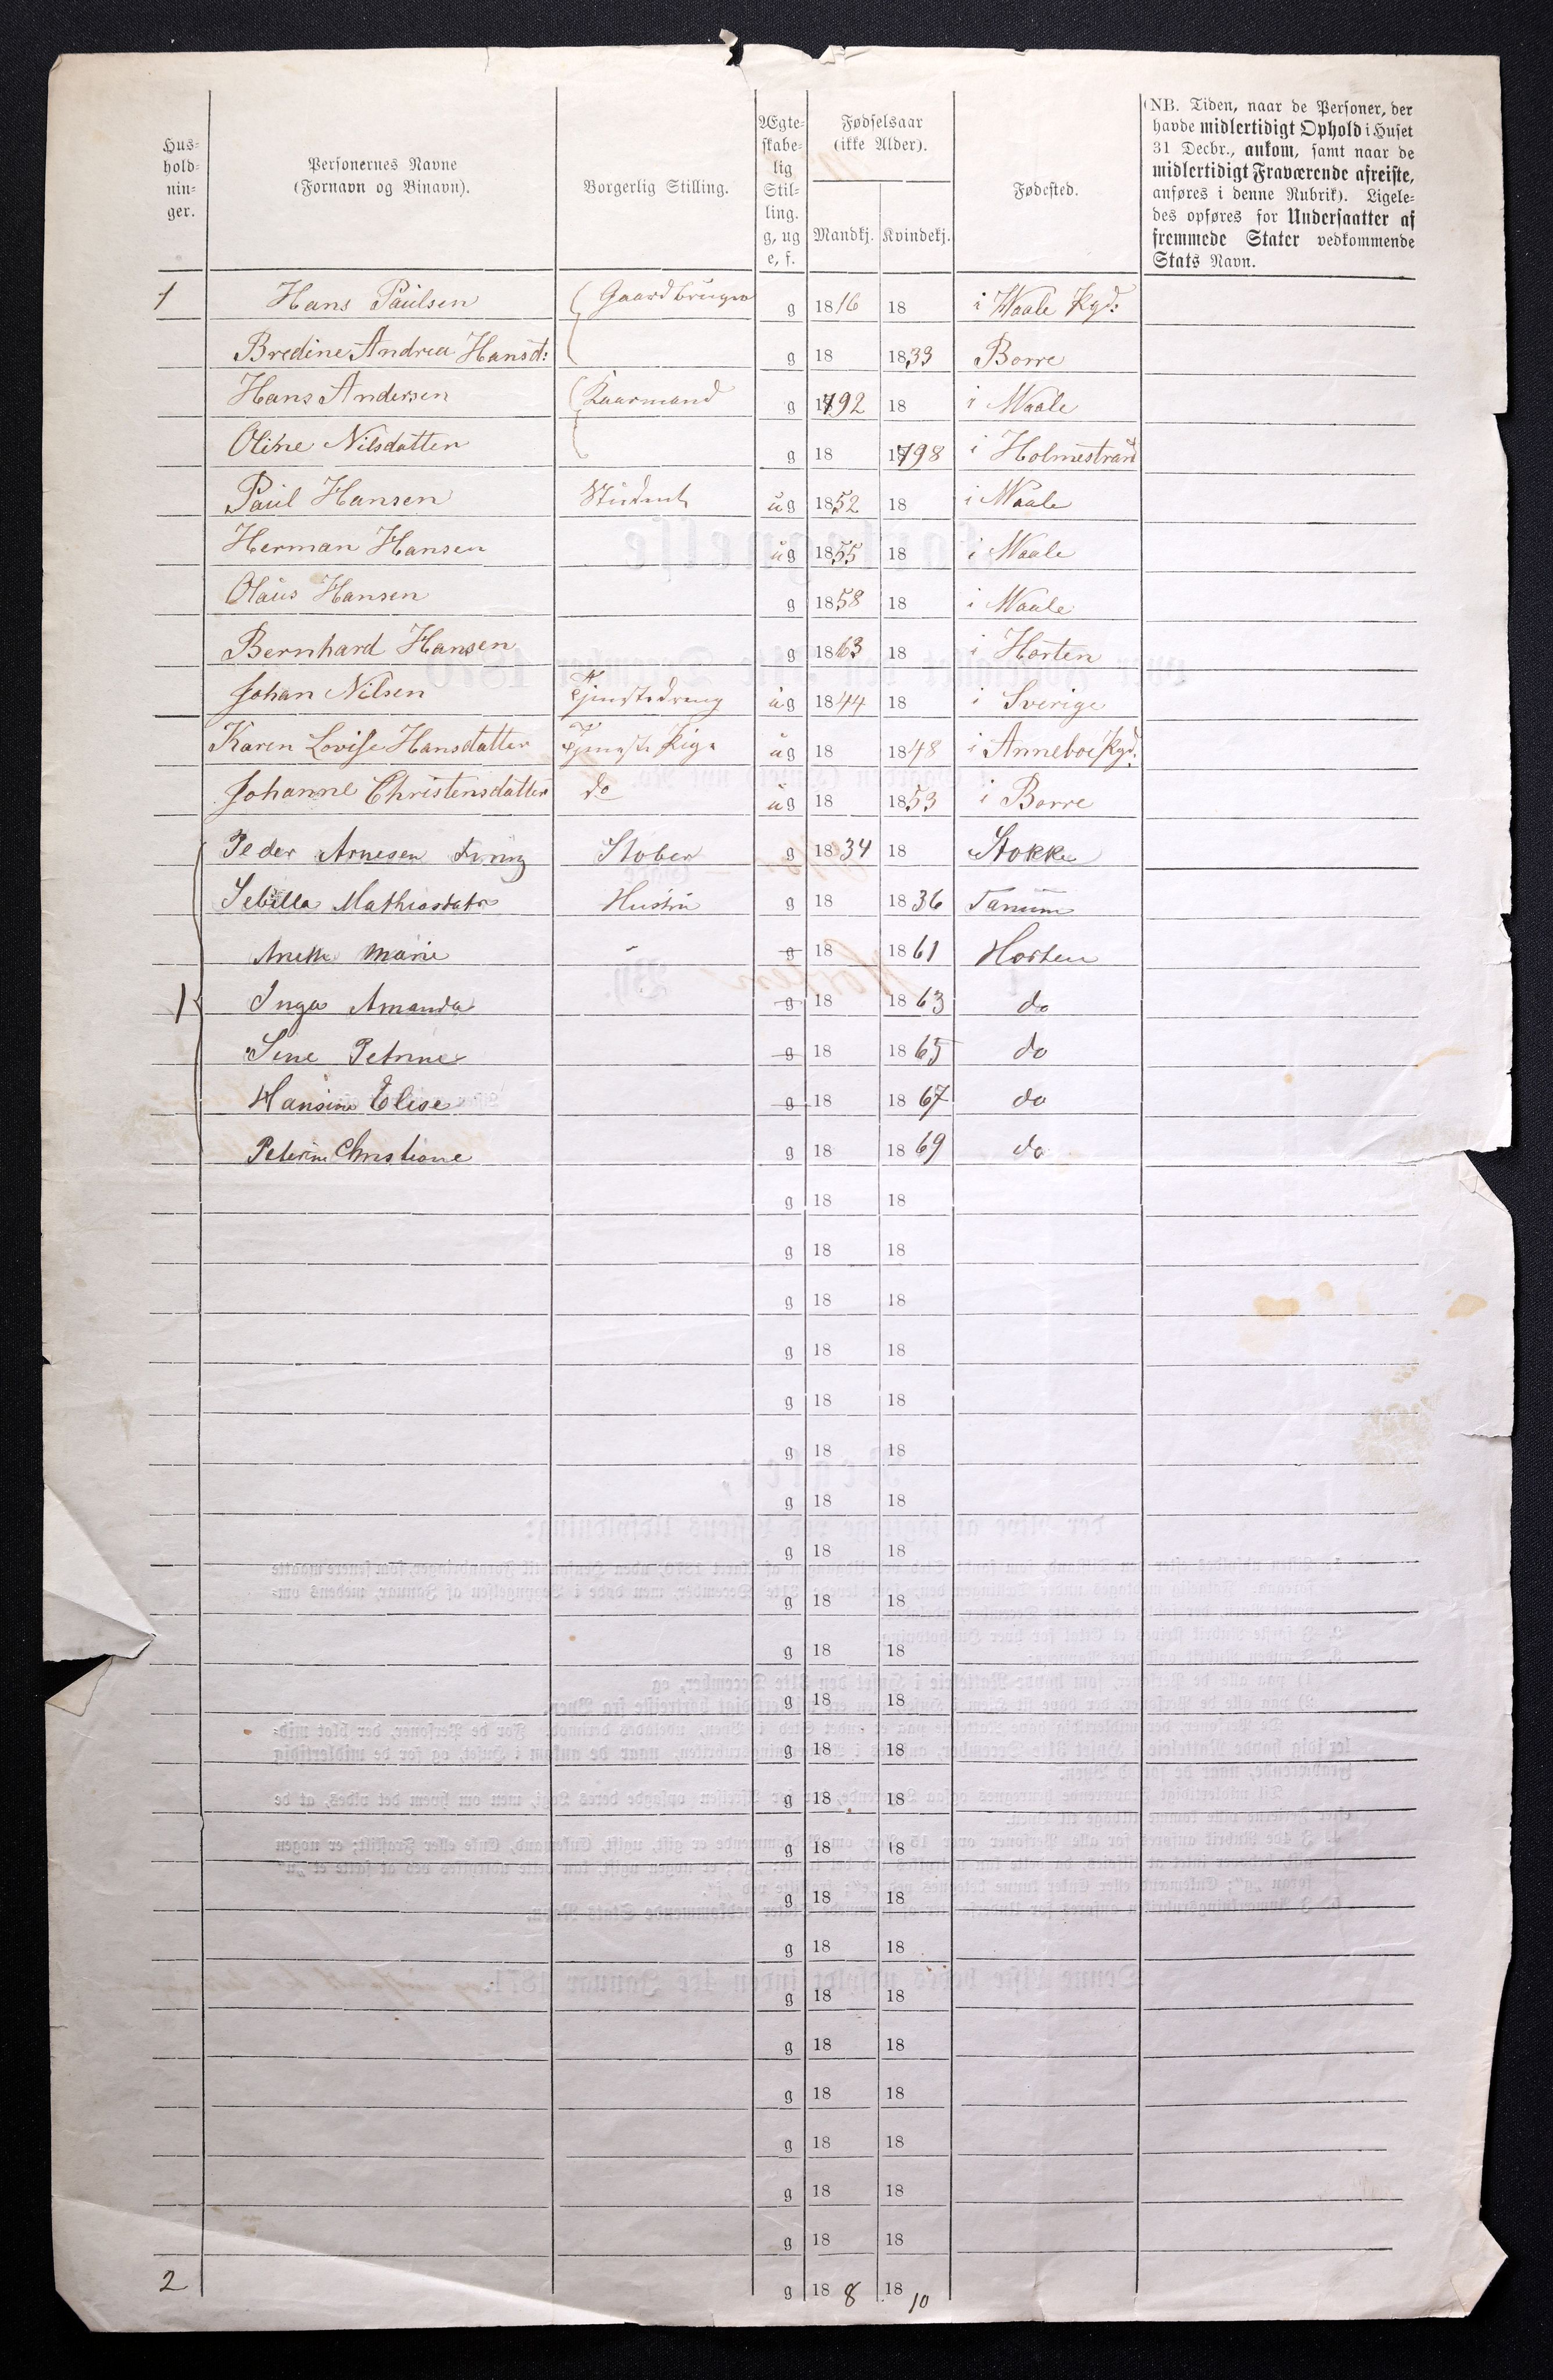 Hus-
hold-
nin-
ger.
Personernes Navne
(Fornavn og Binavn).
Borgerlig Stilling.
Ægte-
skabe-
lig
Stil-
ling.
g, ug
e, f.
Fødselsaar
(ikke Alder).
Mandkj. Kvindekj.
Fødested.
(NB. Tiden, naar de Personer, der
havde midlertidigt Ophold i Huset
31 Decbr., ankom, samt naar de
midlertidigt Fraværende afreiste,
anføres i denne Rubrik). Ligele-
des opføres for Undersaatter af
fremmede Stater vedkommende
Stats Navn.
1 Hans Paulsen Gaardbruger g 1816 18 i Waale Pgd:
Bredine Andrea Hansd: g 18 1833 Borre
Hans Andersen Kaarmand g 1792 18 i Waale
Oline Nilsdatter g 18 1798 i Holmestrand
Paul Hansen Student ug 1852 18 i Waale
Herman Hansen ug 1855 18 i Waale
Olaus Hansen g 1858 18 i Waale
Bernhard Hansen g 1863 18 i Horten
Johan Nilsen Tjenstedreng ug 1844 18 i Sverige
Karen Lovise Hansdatter Tjenestepige ug 18 1848 i Anneboe Pgd:
Johanne Christensdatter do ug 18 1853 i Borre
Peder Arnesen Støber g 1834 18 Stokke
Sebilla Mathiasdatr Hustru g 18 1836 Tanum
Anette Marie - g 18 1861 Horten
1 Inga Amanda g 18 1863 do
Sine Petrine g 18 1865 do
Hansine Elise g 18 1867 do
Peterine Christiane g 18 1869 do
g 18 18
g 18 18
g 18 18
g 18 18
g 18 18
g 18 18
g 18 18
g 18 18
g 18 18
g 18 18
g 18 18
g 18 18
g 18 18
g 18 18
g 18 18
g 18 18
g 18 18
g 18 18
g 18 18
g 18 18
g 18 18
g 18 18
2 g 18 8 18 10